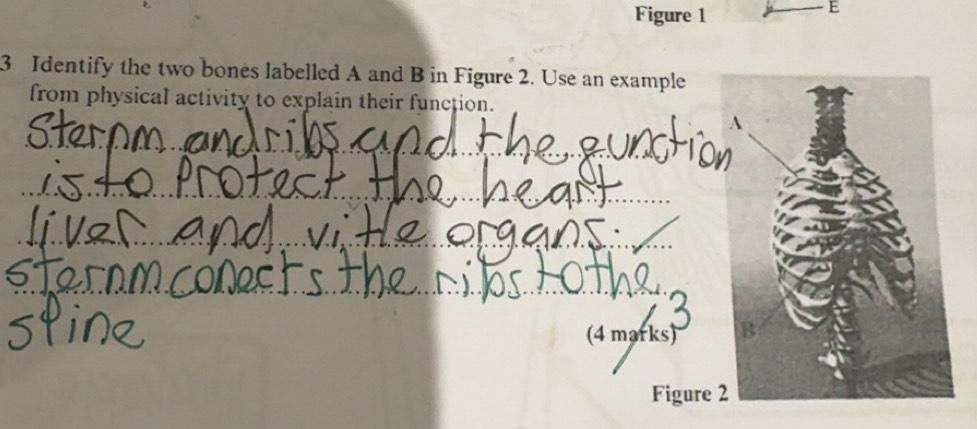 Figure 1
E
3 Identify the two bones labelled A and B in Figure 2. Use an example
from physical activity to explain their function.
Sternm and ribs and the gunction
is to Protect the heart
liver and vitle organs.
sternm conects the ribs to the
spine
3
(4 marks)
A
B
Figure 2